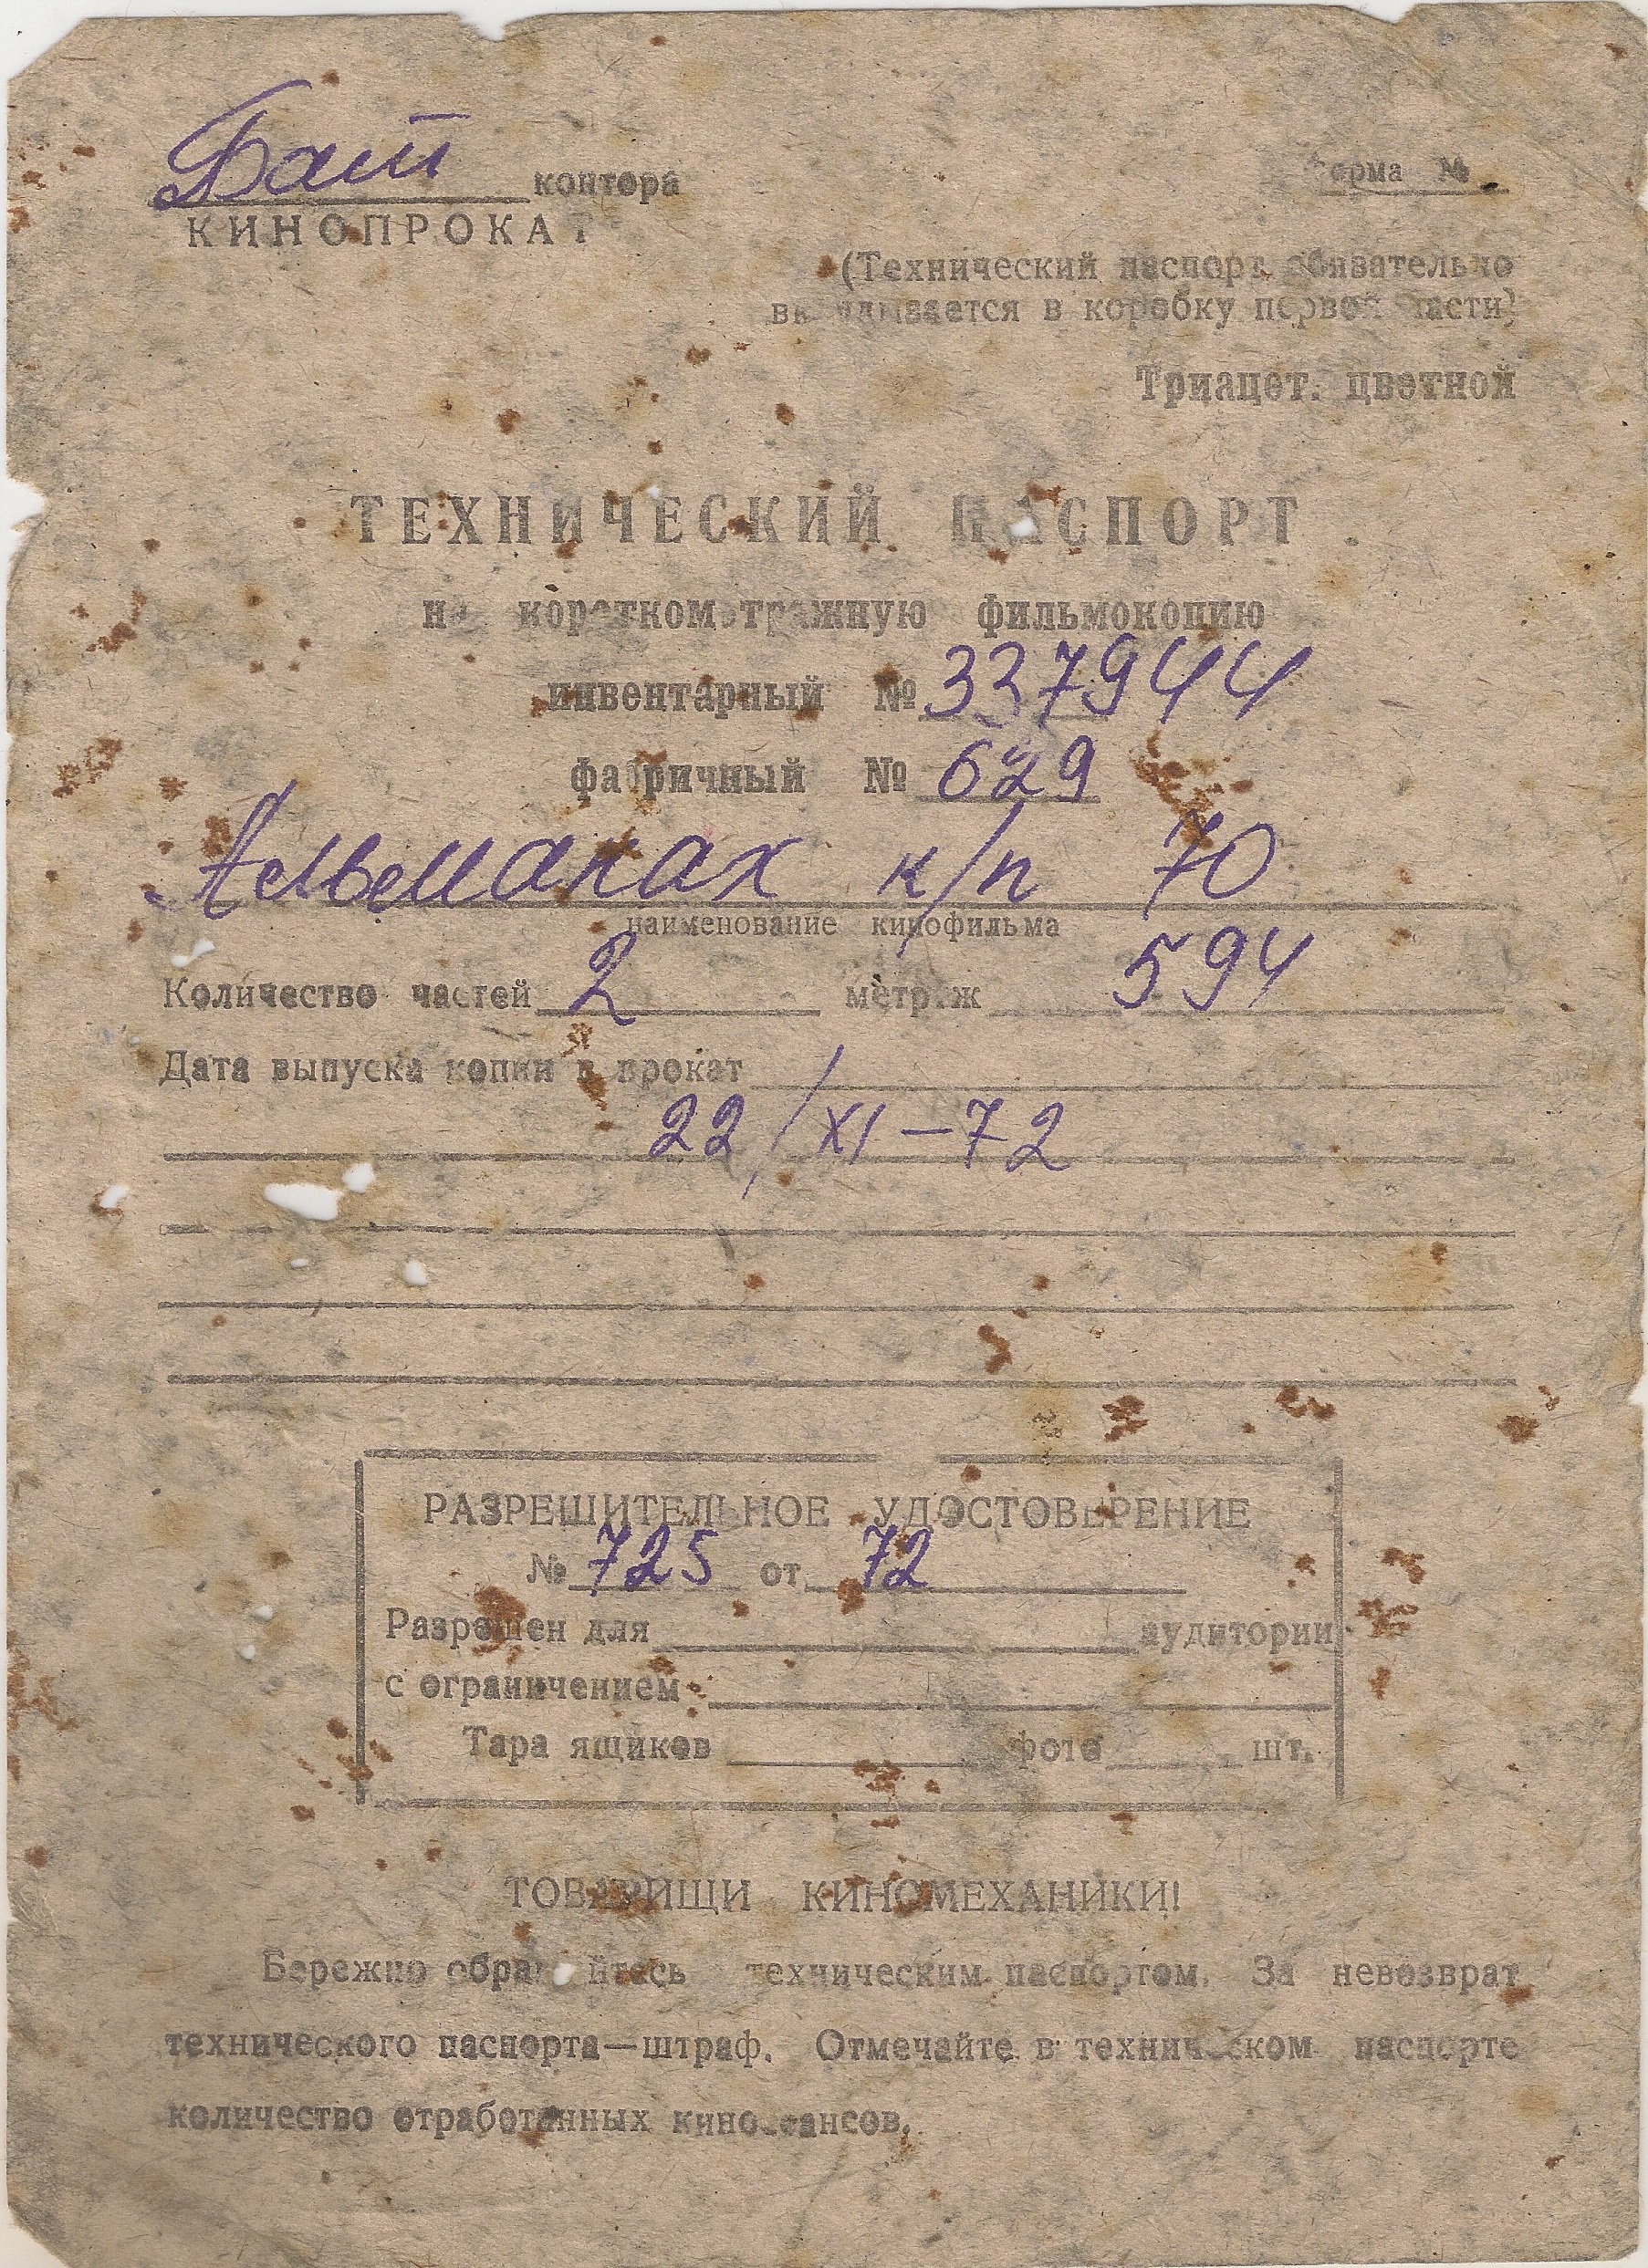 Баш контора
КИНОПРОКАТ
Форма №
(Технический паспорт обязательно
вкладывается в коробку первой части)
Триацет. цветной
ТЕХНИЧЕСКИЙ ПАСПОРТ
на короткометражную фильмокопию
инвентарный № 337944
фабричный № 629
Альманах к/п 70
наименование кинофильма
Количество частей 2 метраж 594
Дата выпуска копии в прокат
22/XI–72
РАЗРЕШИТЕЛЬНОЕ УДОСТОВЕРЕНИЕ
№ 725 от 72
Разрешен для аудитории
с ограничением
Тара ящиков фото шт.
ТОВАРИЩИ КИНОМЕХАНИКИ!
Бережно обращайтесь техническим паспортом. За невозврат
технического паспорта—штраф. Отмечайте в техническом паспорте
количество отработанных киносеансов.